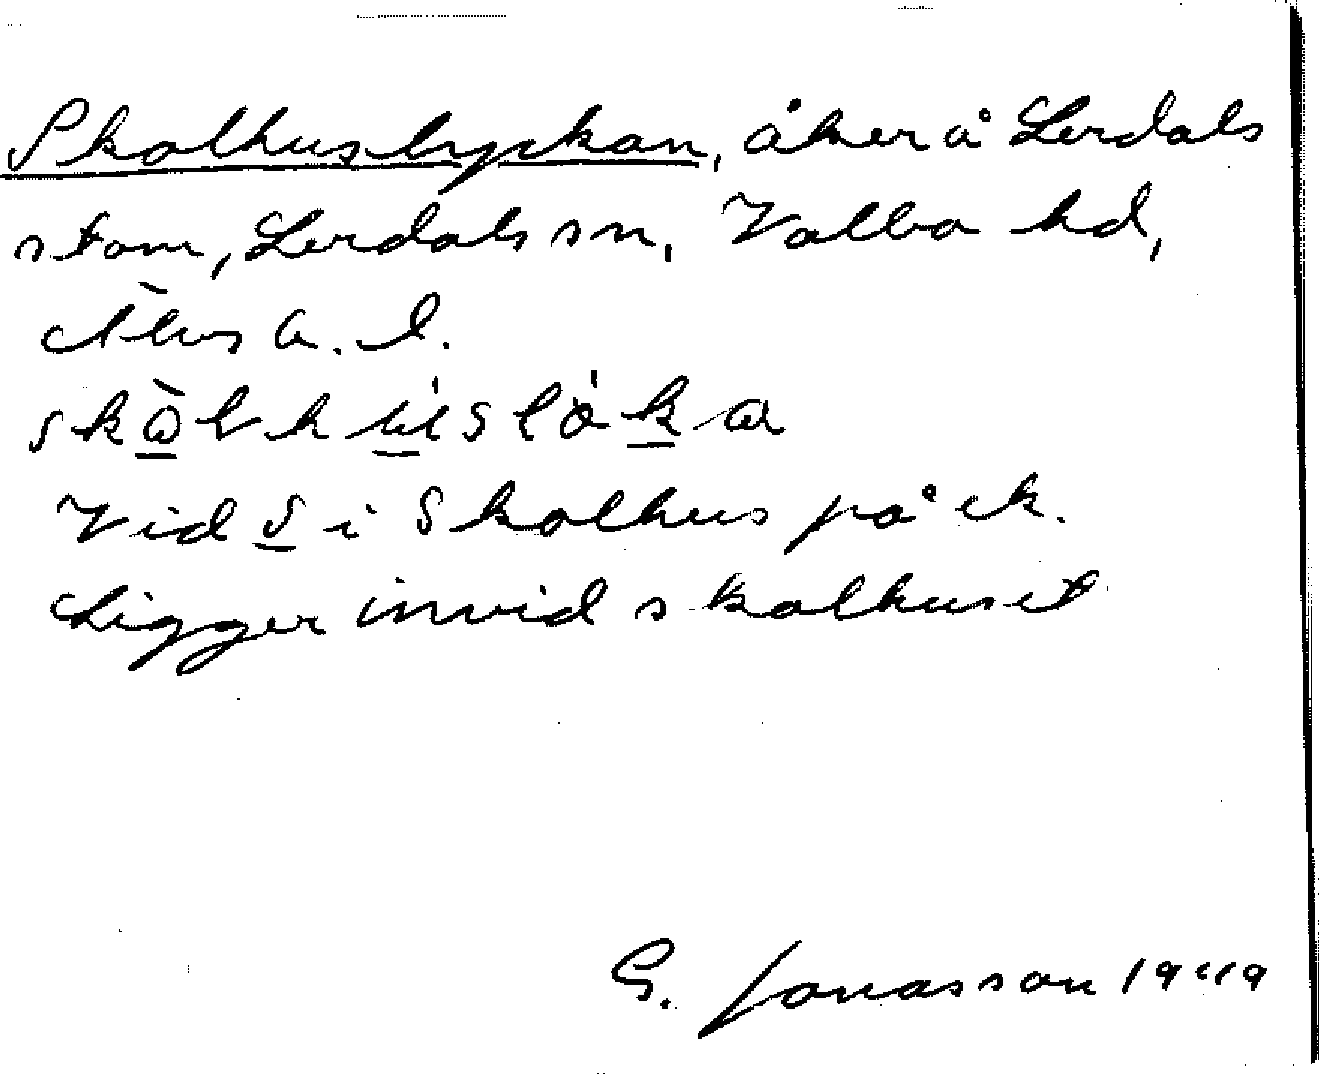 Skolhuslyckan, åker å Lerdals
stom, Lerdals sn, Valbo hd,
Älvs. l.
Vid S i Skolhus på ek.
Ligger invid skolhuset
G. Jonasson 1949